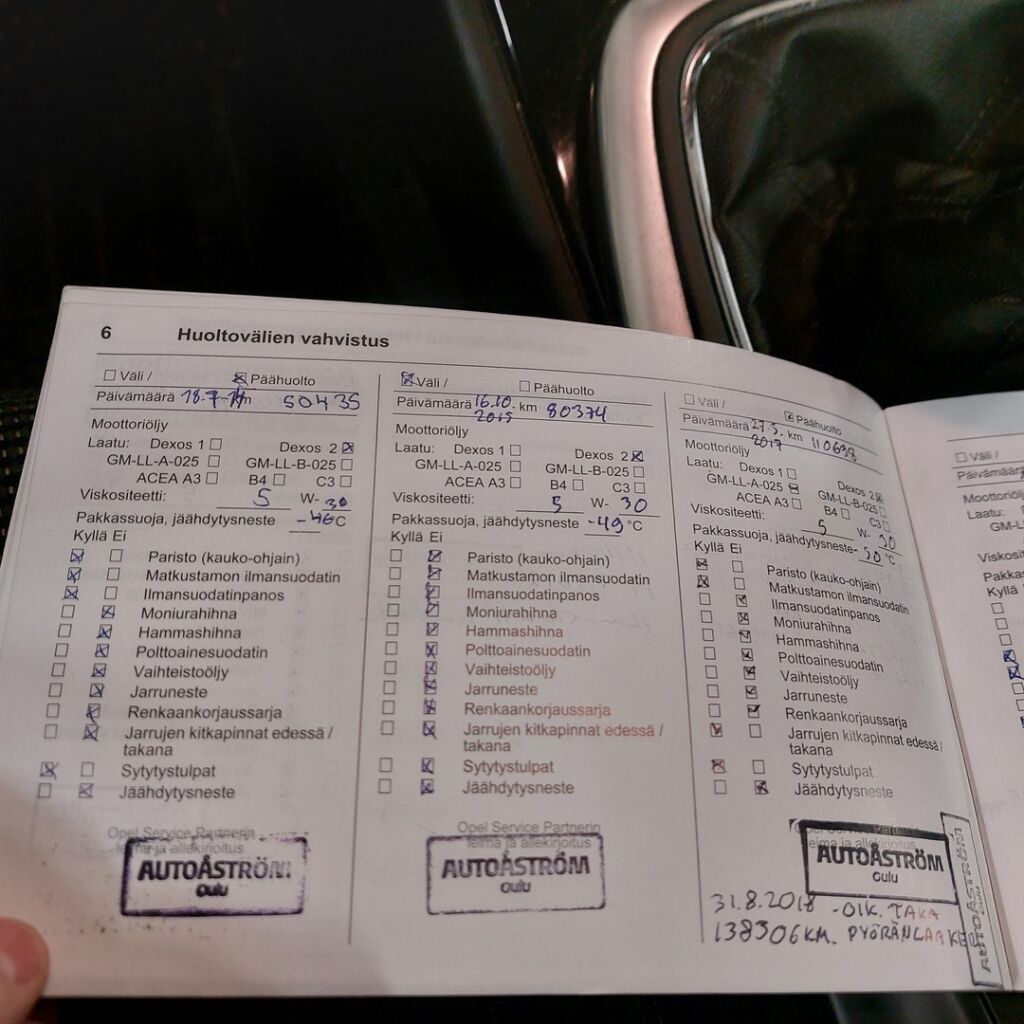 6 Huoltovälien vahvistus
Väli / Päähuolto
Päivämäärä 18.7. km 50435
Moottoriöljy
Laatu: Dexos 1 Dexos 2
GM-LL-A-025 GM-LL-B-025
ACEA A3 B4 C3
Viskositeetti: 5 W- 30
Pakkassuoja, jäähdytysneste -46 °C
Kyllä Ei
Paristo (kauko-ohjain)
Matkustamon ilmansuodatin
Ilmansuodatinpanos
Moniurahihna
Hammashihna
Polttoainesuodatin
Vaihteistoöljy
Jarruneste
Renkaankorjaussarja
Jarrujen kitkapinnat edessä /
takana
Sytytystulpat
Jäähdytysneste
Opel Service Partnerin
leima ja allekirjoitus
AUTOÅSTRÖM
Oulu
Väli / Päähuolto
Päivämäärä 16.10. km 80374
2015
Moottoriöljy
Laatu: Dexos 1 Dexos 2
GM-LL-A-025 GM-LL-B-025
ACEA A3 B4 C3
Viskositeetti: 5 W- 30
Pakkassuoja, jäähdytysneste -49 °C
Kyllä Ei
Paristo (kauko-ohjain)
Matkustamon ilmansuodatin
Ilmansuodatinpanos
Moniurahihna
Hammashihna
Polttoainesuodatin
Vaihteistoöljy
Jarruneste
Renkaankorjaussarja
Jarrujen kitkapinnat edessä /
takana
Sytytystulpat
Jäähdytysneste
Opel Service Partnerin
leima ja allekirjoitus
AUTOÅSTRÖM
Oulu
Väli / Päähuolto
Päivämäärä 27.3. km 110638
2017
Moottoriöljy
Laatu: Dexos 1 Dexos 2
GM-LL-A-025 GM-LL-B-025
ACEA A3 B4 C3
Viskositeetti: 5 W- 30
Pakkassuoja, jäähdytysneste -30 °C
Kyllä Ei
Paristo (kauko-ohjain)
Matkustamon ilmansuodatin
Ilmansuodatinpanos
Moniurahihna
Hammashihna
Polttoainesuodatin
Vaihteistoöljy
Jarruneste
Renkaankorjaussarja
Jarrujen kitkapinnat edessä /
takana
Sytytystulpat
Jäähdytysneste
Opel Service Partnerin
leima ja allekirjoitus
AUTOÅSTRÖM
Oulu
31.8.2018 -OIK. TAKA
138306KM. PYÖRÄNLAAKERI
AUTOÅSTRÖM
Oulu
Väli /
Päivämäärä
Moottoriöljy
Laatu:
GM-L
Viskosi
Pakkas
Kyllä